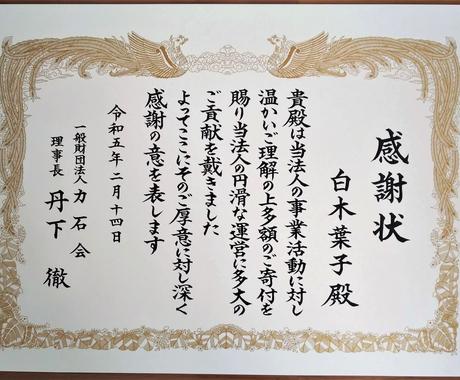 感謝状
白木葉子殿
貴殿は当法人の事業活動に対し
温かいご理解の上多額のご寄付を
賜り当法人の円滑な運営に多大の
ご貢献を戴きました
よってここにそのご厚意に対し深く
感謝の意を表します
令和五年二月十四日
一般財団法人 力石会
理事長 丹下 徹